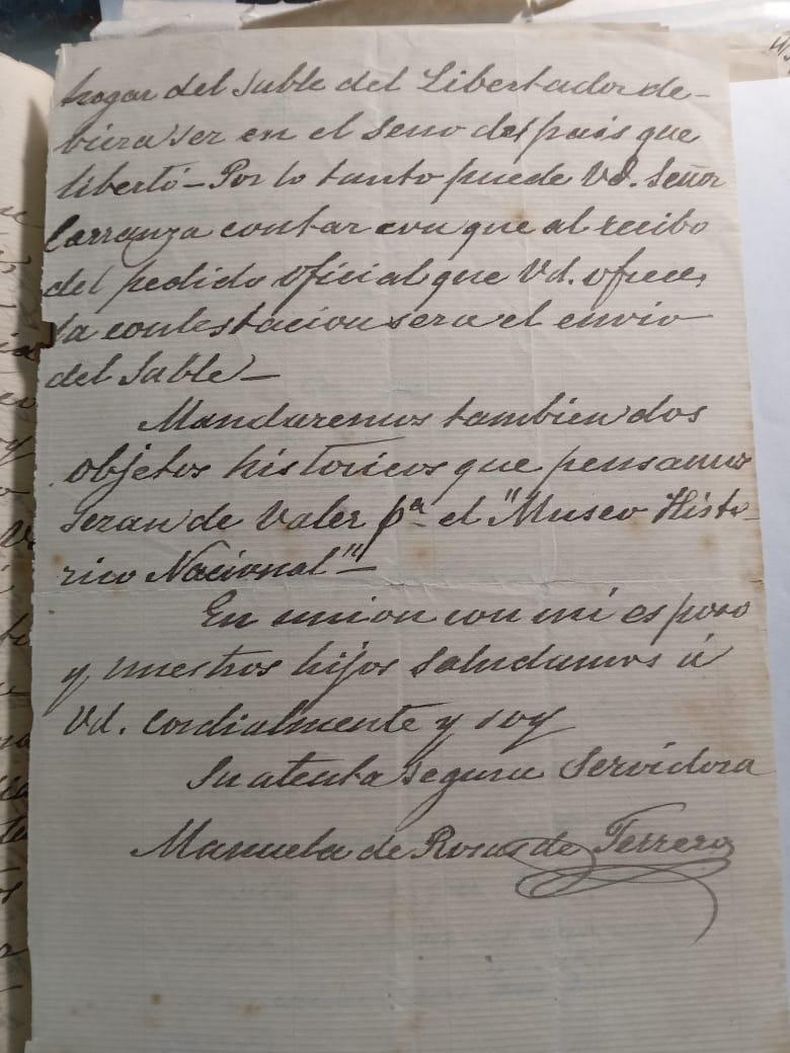 hogar del Sable del Libertador de-
biera ser en el seno del pais que
libertó - Por lo tanto puede Vd. Señor
Carranza contar con que al recibo
del pedido oficial que Vd. ofrece,
la contestacion sera el envio
del Sable -
Mandaremos tambien dos
objetos historicos que pensamos
seran de valer pª el "Museo Histo-
rico Nacional" -
En union con mi esposo
y nuestros hijos saludamos á
Vd. cordialmente y soy
Su atenta segura Servidora
Manuela de Rosas de Terrero